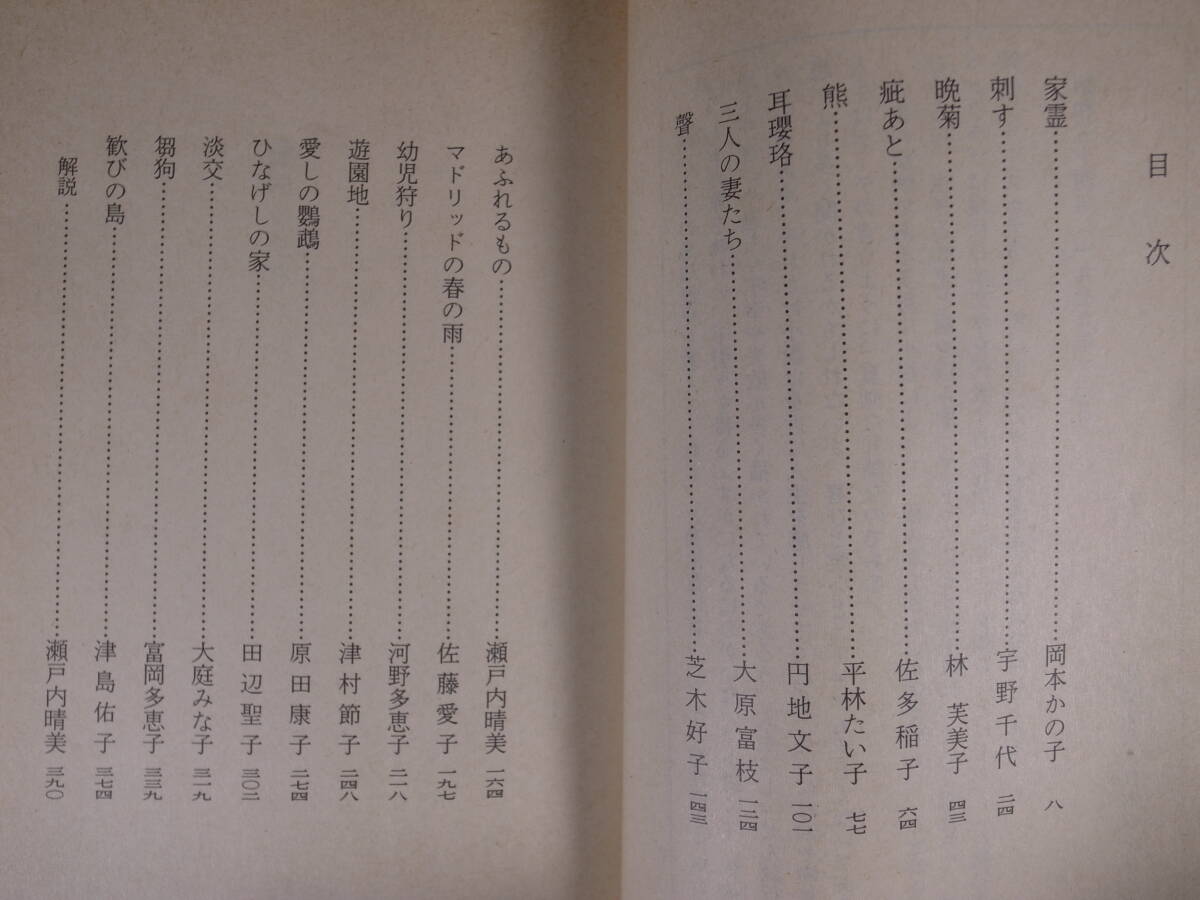 目次
家霊……岡本かの子 八
刺す……宇野千代 二四
晩菊……林 芙美子 四三
疵あと……佐多稲子 六四
熊……平林たい子 七七
耳瓔珞……円地文子 一〇一
三人の妻たち……大原富枝 一二四
聲……芝木好子 一四三
あふれるもの……瀬戸内晴美 一六四
マドリッドの春の雨……佐藤愛子 一九七
幼児狩り……河野多恵子 二一八
遊園地……津村節子 二四八
愛しの鸚鵡……原田康子 二七四
ひなげしの家……田辺聖子 三〇二
淡交……大庭みな子 三一九
芻狗……富岡多恵子 三三九
歓びの島……津島佑子 三七四
解説……瀬戸内晴美 三九〇